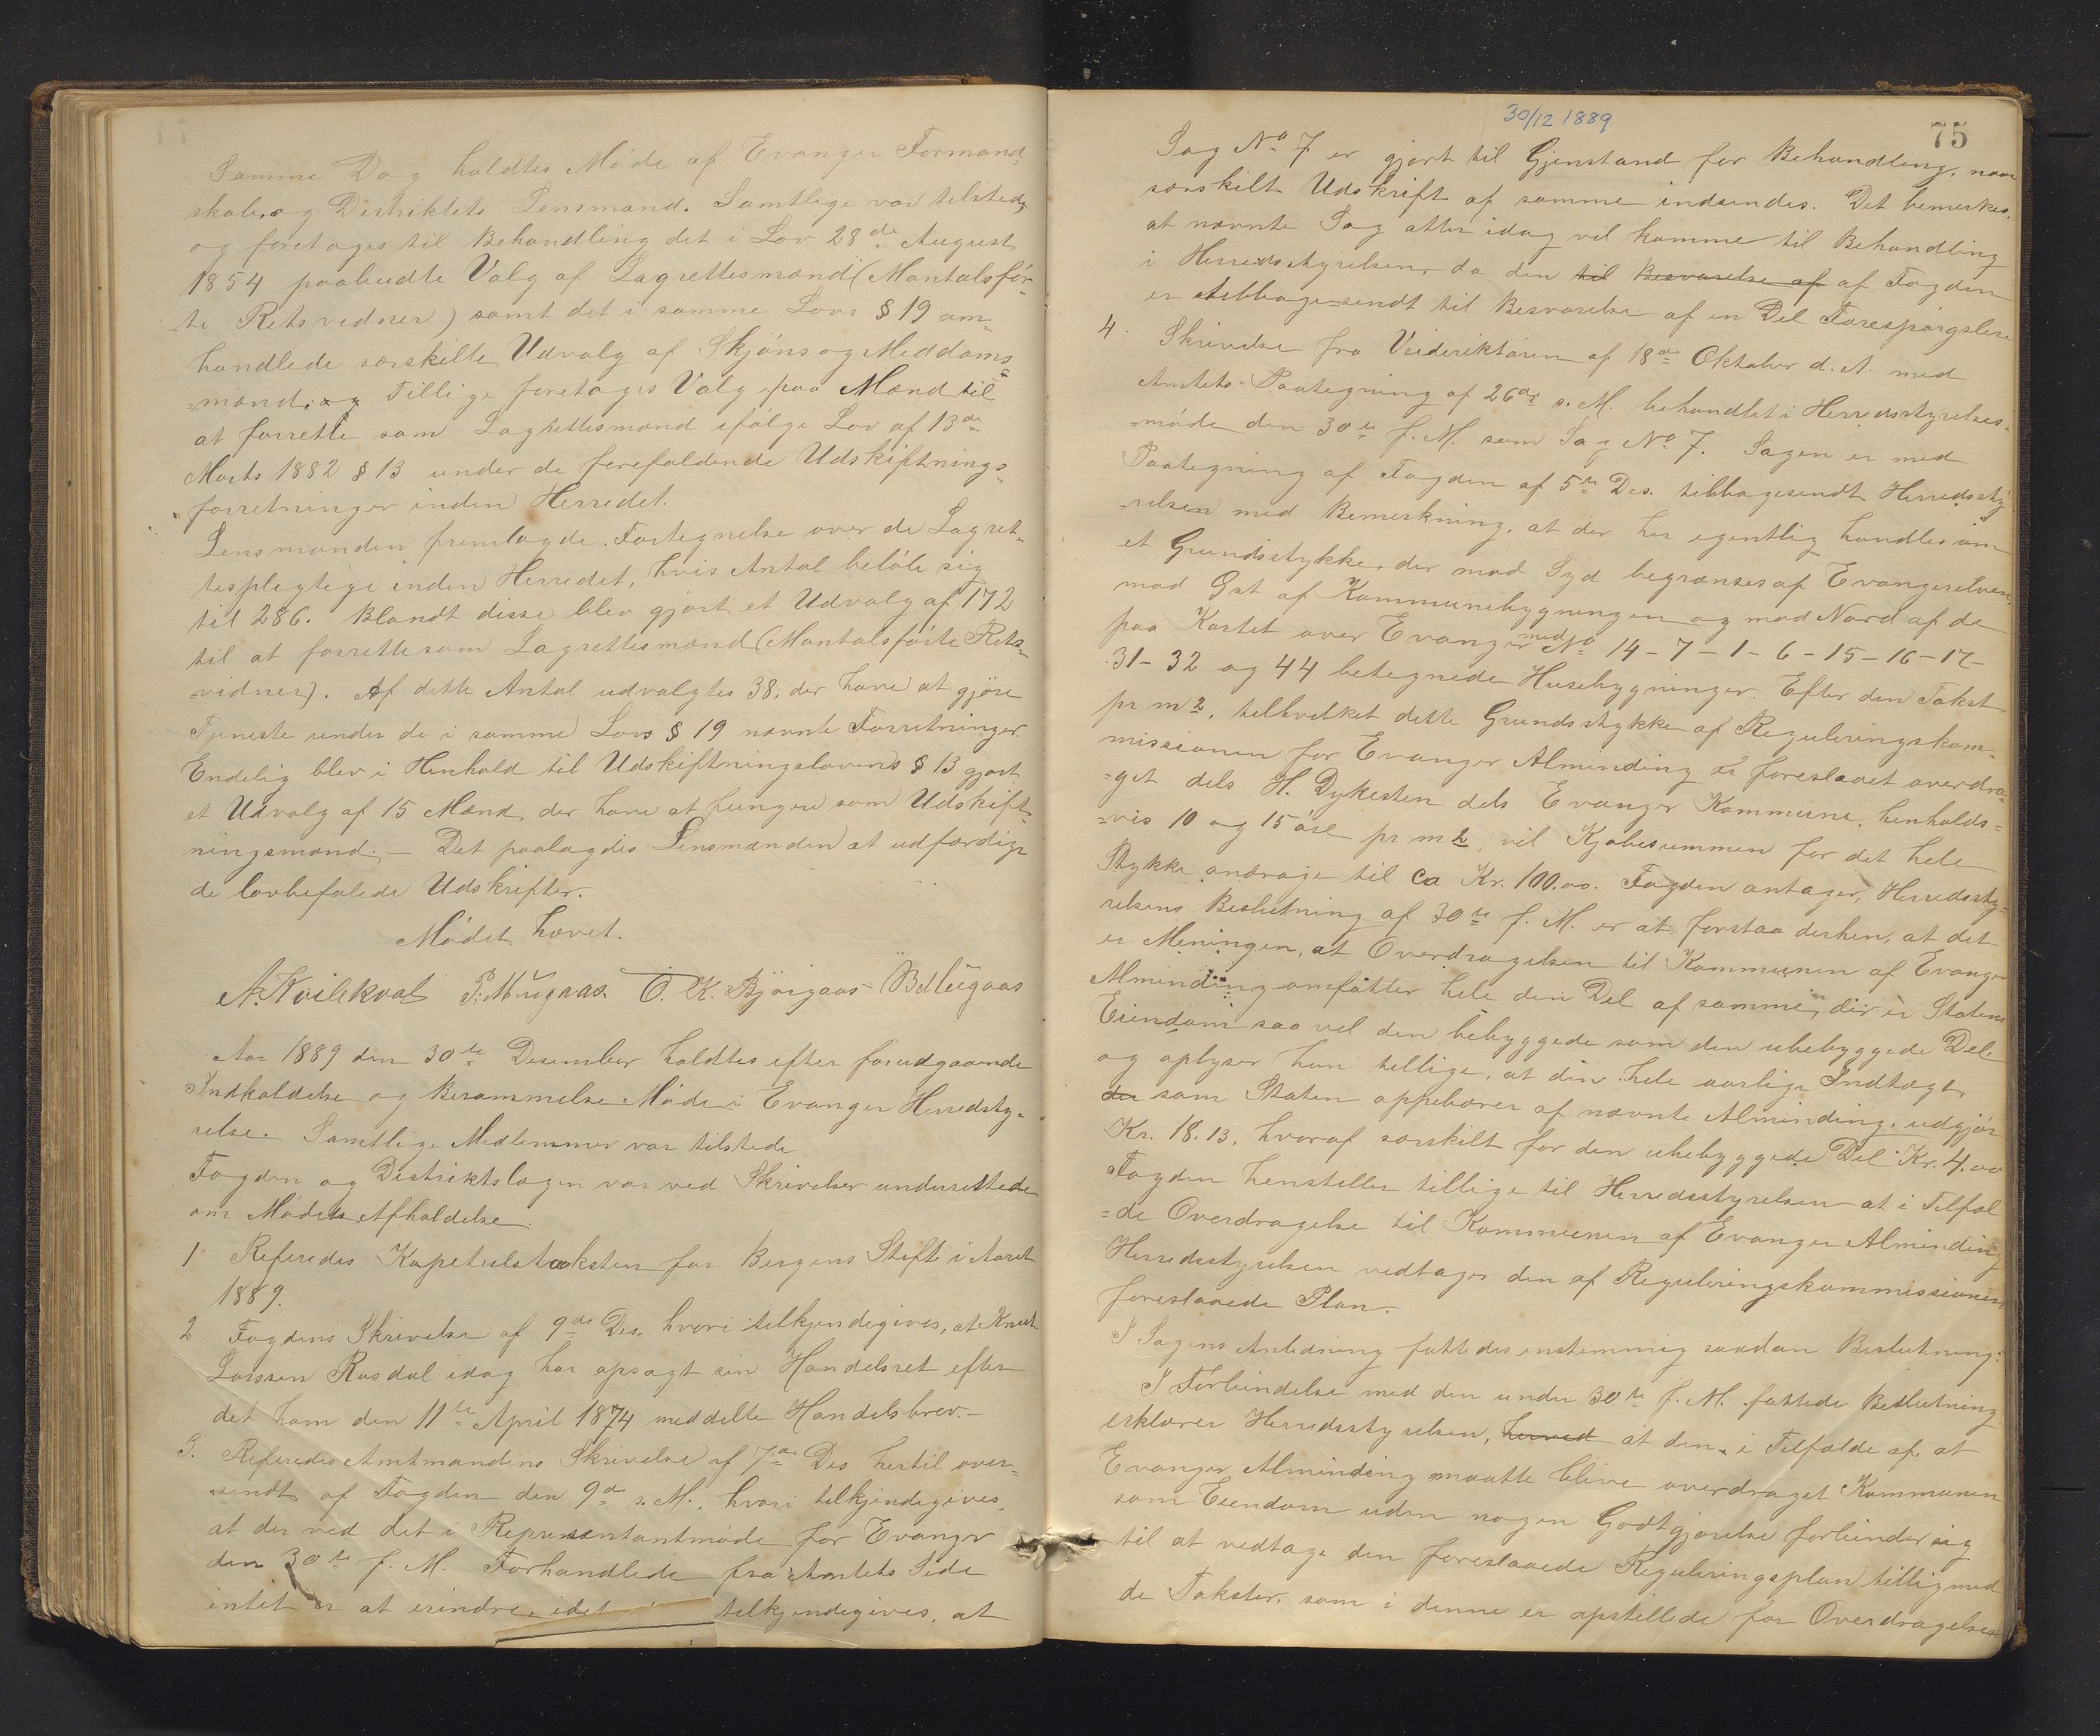 Samme Dag holdtes Møde af Evanger Formand-
skab, og Distriktets Lensmand. Samtlige var tilstede,
og foretoges til Behandling det i Lov 28de August
1854 paabudte Valg af Lagrettesmænd (Mantalsfør-
te Retsvidner) samt det i samme Lovs § 19 om-
handlede særskilte Udvalg af Skjöns og Meddoms-
mænd, og Tillige foretoges Valg paa Mænd til
at forrette som Lagrettesmænd ifölge Lov af 13de
Marts 1882 § 13 under de forefaldende Udskiftnings-
forretninger inden Herredet.
Lensmanden fremlagde Fortegnelse over de Lagret-
tespligtige inden Herredet, hvis Antal beløb sig
til 286. Blandt disse blev gjort et Udvalg af 172
til at forrette som Lagrettesmænd (Mantalsførte Rets-
vidner). Af dette Antal udvalgtes 38, der have at gjöre
Tjeneste under de i samme Lovs § 19 nævnte Forretninger.
Endelig blev i Henhold til Udskiftningslovens § 13 gjort
et Udvalg af 15 Mænd, der have at fungere som Udskift-
ningsmænd. — Det paalagdes Lensmanden at udfærdige
de lovbefalede Udskrifter.
Mödet hævet.
A. Kvilekval P. Mugaas. O. K. Björgaas B Mugaas
Aar 1889 den 30te Desember holdtes efter forudgaaende
Indkaldelse og Berammelse Møde i Evanger Herredsty-
relse. Samtlige Medlemmer var tilstede
Fogden og Distriktslægen var ved Skrivelser underrettede
om Mödets Afholdelse.
1 Referedes Kapitelstaksten for Bergens Stift i Aaret
1889.
2 Fogdens Skrivelse af 9de Des. hvori tilkjendegives, at Knut
Larssen Rasdal idag har opsagt sin Handelsret efter
det ham den 11te April 1874 meddelte Handelsbrev. —
3. Referedes Amtmandens Skrivelse af 7de Des hertil over-
sendt af Fogden den 9de s. M., hvori tilkjendegives,
at der ved det i Repræsentantmöde for Evanger
den 30te f. M. Forhandlede fra Amtets Side
intet er at erindre, idet tilkjendegives, at
30/12 1889
75
Sag No 7 er gjort til Gjenstand for Behandling, naar
særskilt Udskrift af samme indsendes. Det bemerkes,
at nævnte Sag atter idag vil komme til Behandling
i Herredsstyrelsen, da den til Besvarelse af af Fogden
er tilbagesendt til Besvarelse af en Del Forespörgsler.
4. Skrivelse fra Veidirektören af 18de Oktober d. A. med
Amtets Paategning af 26de s. M. behandlet i Herredsstyrelses-
möde den 30te f. M. som Sag No 7. Sagen er med
Paategning af Fogden af 5te Des. tilbagesendt Herredssty-
relsen med Bemerkning, at der her egentlig handles om
et Grundsstykke, der mod Syd begrænses af Evangerelven,
mod Øst af Kommunebygningen og mod Nord af de
paa Kartet over Evanger med No 14 – 7 – 1 – 6 – 15 – 16 – 17 –
31 – 32 og 44 betegnede Husebygninger. Efter den Takst
pr m2, tilhvilket dette Grundsstykke af Reguleringskom-
missionen for Evanger Alminding er foreslaaet overdra-
get dels H. Dykesten dels Evanger Kommune, henholds-
vis 10 og 15 öre pr m2, vil Kjøbesummen for det hele
Stykke andrage til Ca Kr. 100.00. Fogden antager, Herredssty-
relsens Beslutning af 30te f. M. er at forstaa derhen, at det
er Meningen, at Overdragelsen til Kommunen af Evanger
Alminding omfatter hele den Del af samme, der er Statens
Eiendom saa vel den bebyggede som den ubebyggede Del
og oplyser han tillige, at den hele aarlige Indtægt
der som Staten oppebærer af nævnte Alminding, udgjör
Kr. 18.13, hvoraf særskilt for den ubebyggede Del Kr. 4.00
Fogden henstiller tillige til Herredsstyrelsen at i Tilfæl
de Overdragelse til Kommunen af Evanger Alminding
Herredsstyrelsen vedtager den af Reguleringskommissionen
foreslaaede Plan.
I Sagens Anledning fattedes enstemmig saadan Beslutning:
I Forbindelse med den under 30te f. M. fattede Beslutning
erklærer Herredsstyrelsen, herved at den, i Tilfælde af, at
Evanger Alminding maatte blive overdraget Kommunen
som Eiendom uden nogen Godtgjörelse forbinder sig
til at vedtage den foreslaaede Reguleringsplan tilligemed
de Takster, som i denne er opstillede for Overdragelsen